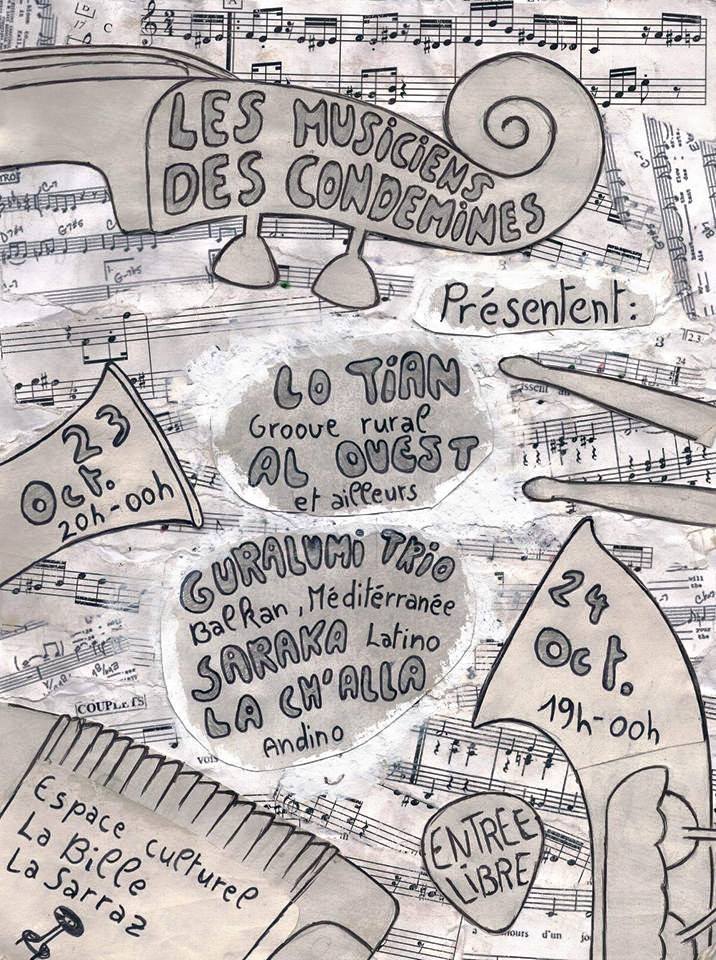 LES MUSICIENS
DES CONDEMINES
Présentent:
23
Oct.
20h-00h
LO TIAN
Groove rural
AL OUEST
et ailleurs
GURALUMI TRIO
Balkan, Méditérranée
SARAKA Latino
LA CH'ALLA
Andino
24
Oct.
19h-00h
COUPLETS
Espace culturel
La Bille
La Sarraz
ENTREE
LIBRE